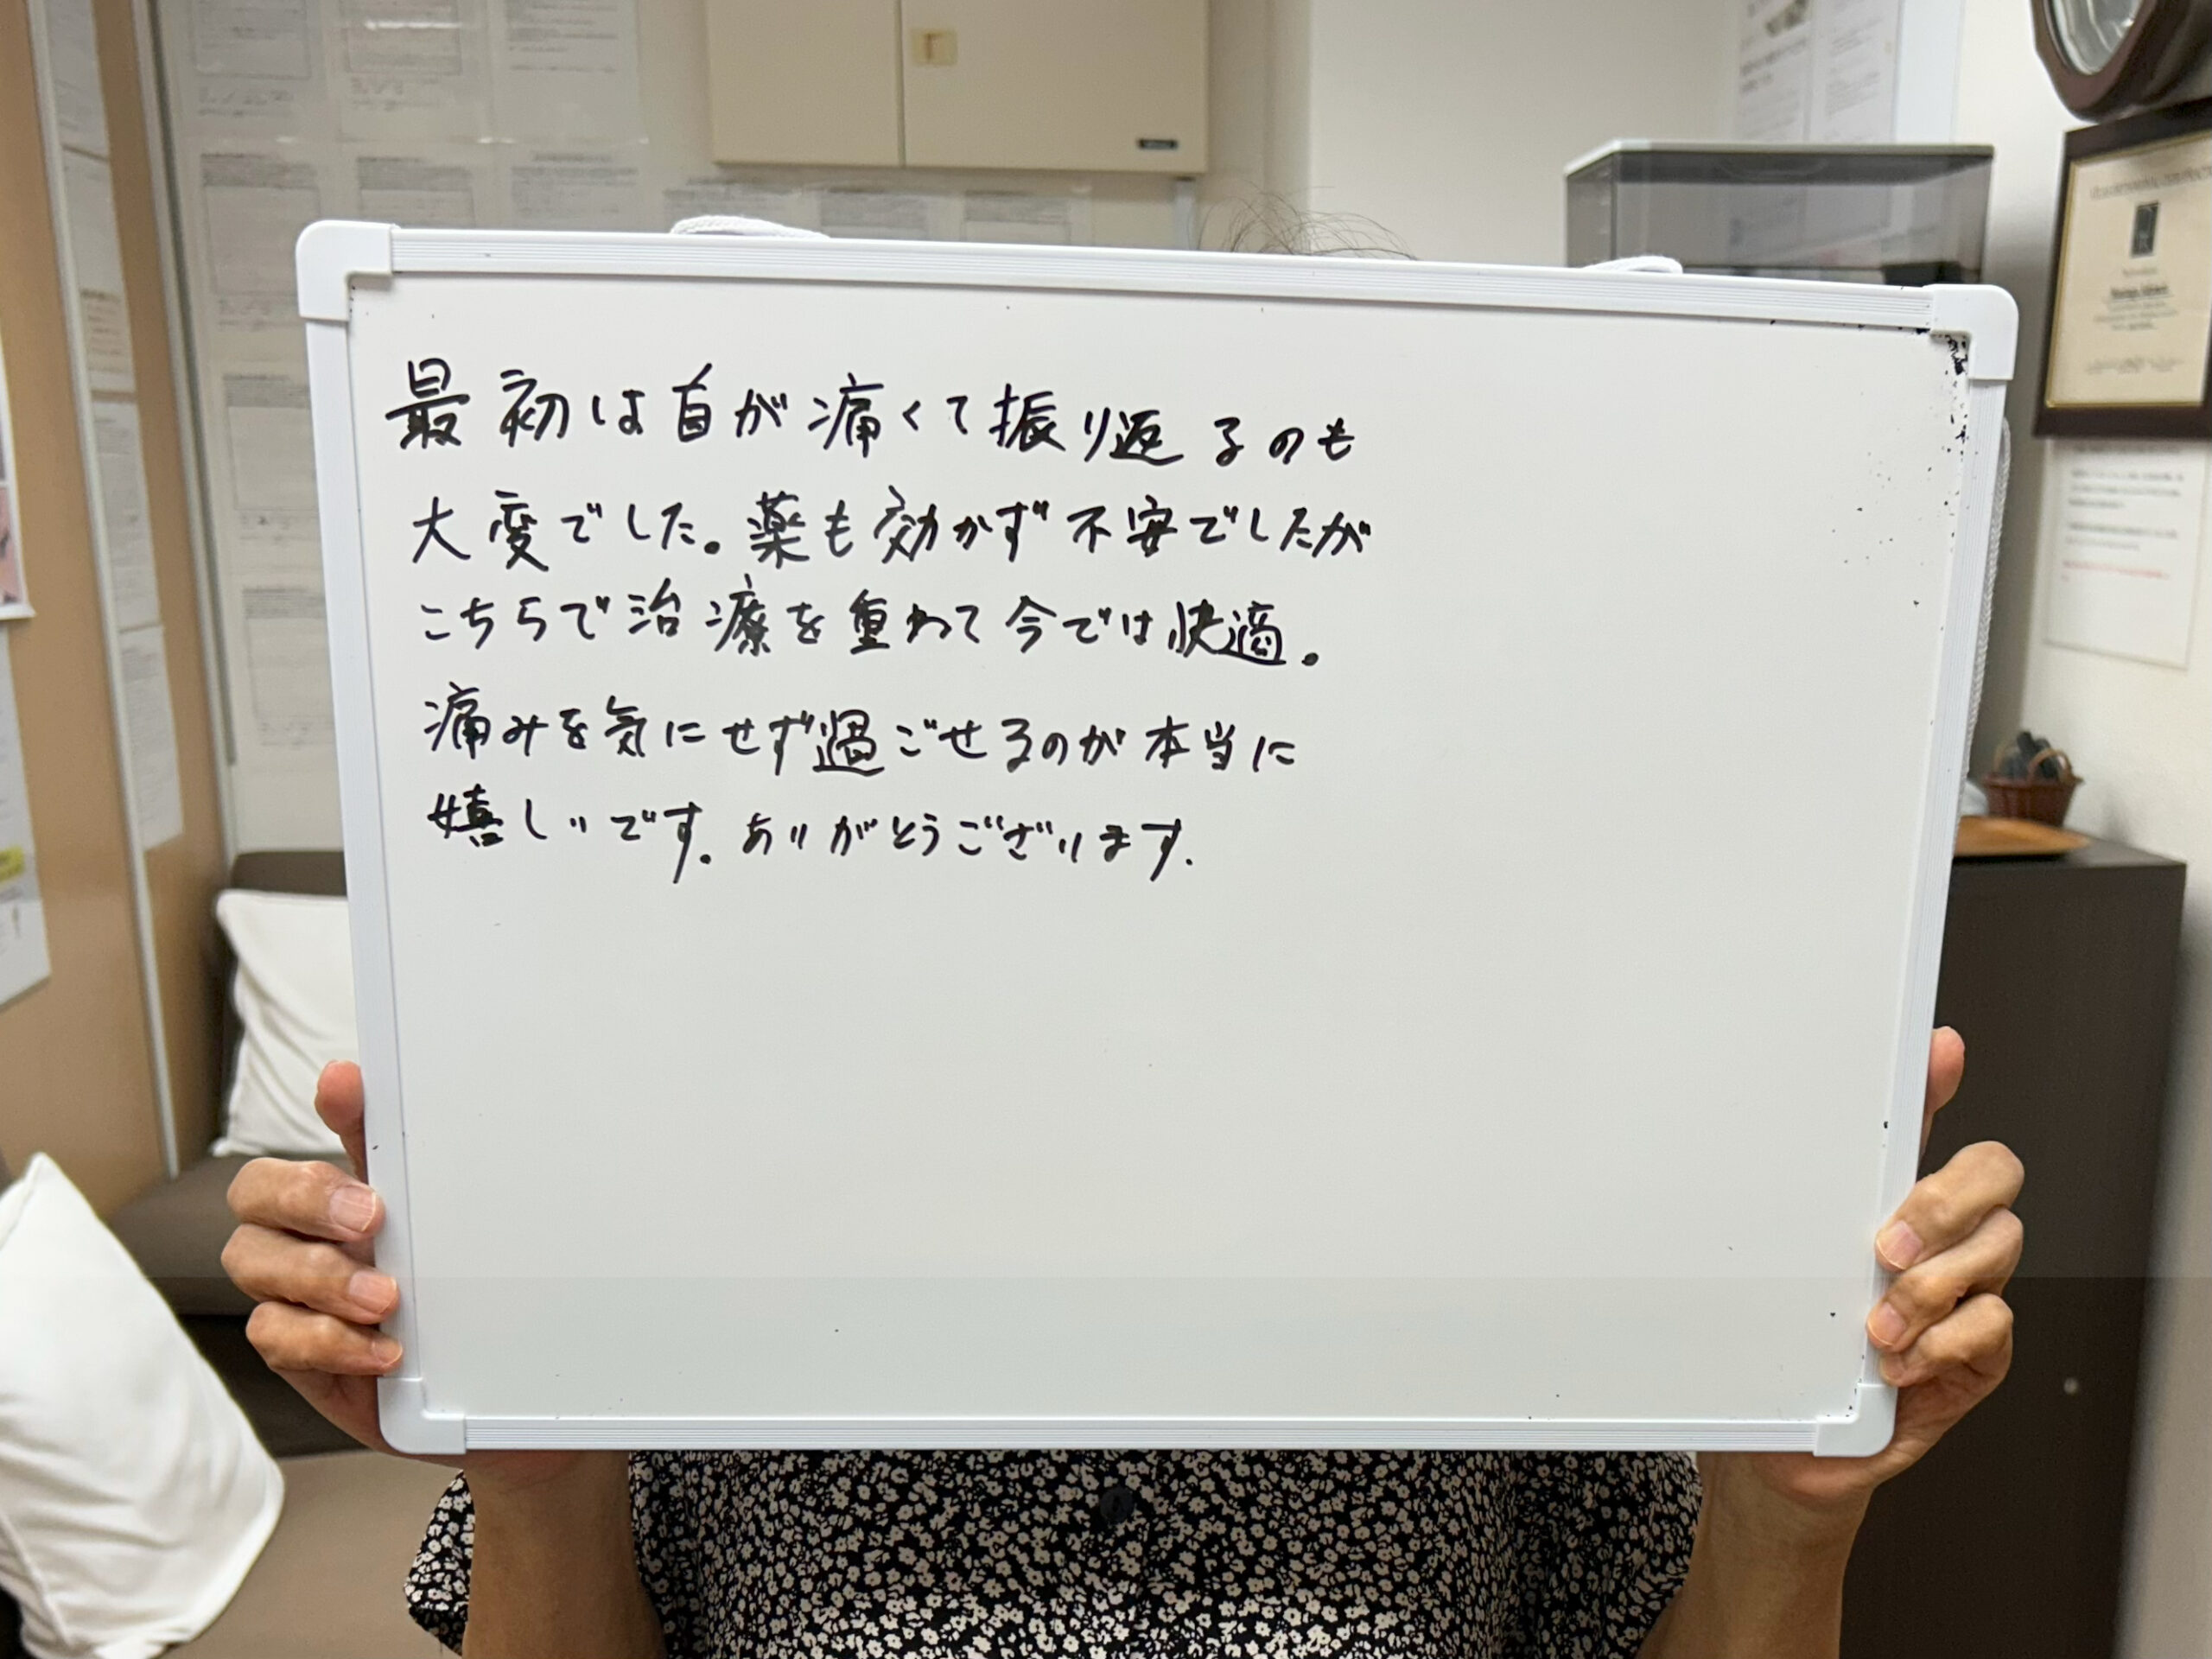 最初は首が痛くて振り返るのも
大変でした。薬も効かず不安でしたが
こちらで治療を重ねて今では快適。
痛みを気にせず過ごせるのが本当に
嬉しいです。ありがとうございます.